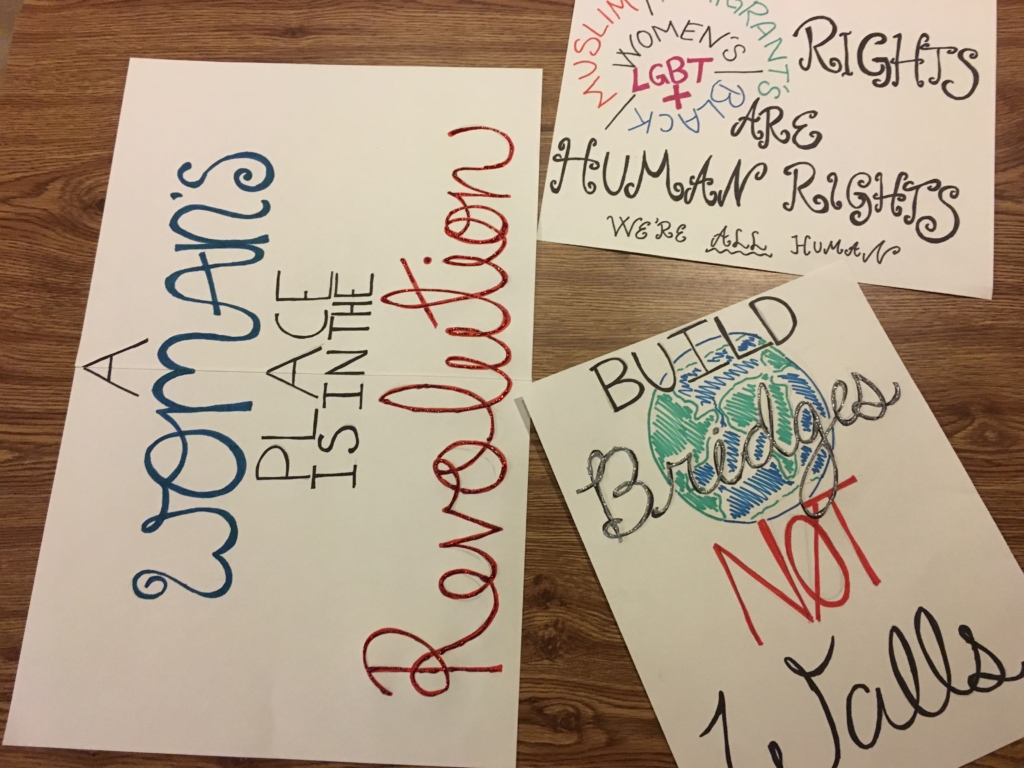 A
WomAn's
PLACE
IS IN THE
Revolution
MUSLIM
IGRANT'S
BLACK
WOMEN'S
LGBT
+
RIGHTS
ARE
HUMAN RIGHTS
WE'RE ALL HUMAN
BUILD
Bredges
NØT
Walls